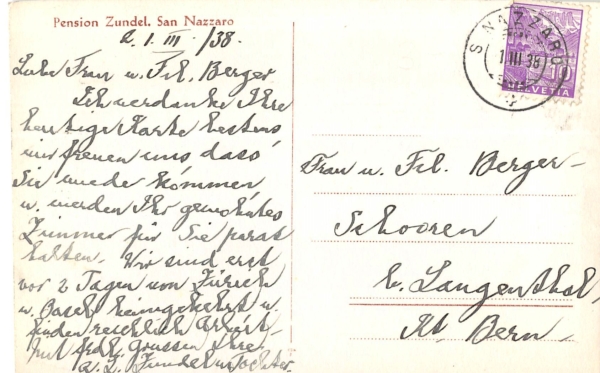 Pension Zundel. San Nazzaro
d. 1. III. /38.
Liebe Frau u. Frl. Berger
Ich verdanke Ihre
heutige Karte bestens
wir freuen uns dass
Sie wieder kommen,
u. werden Ihr gewohntes
Zimmer für Sie parat
halten. Wir sind erst
vor 2 Tagen von Zürich
u. Basel heimgekehrt u.
finden reichlich Arbeit.
Mit frdl. grüssen Ihre
Zundel u. Tochter.
S. NAZZARO
1 III 38
10
HELVETIA
Frau u. Frl. Berger-
Schooren
b. Langenthal,
Kt. Bern.